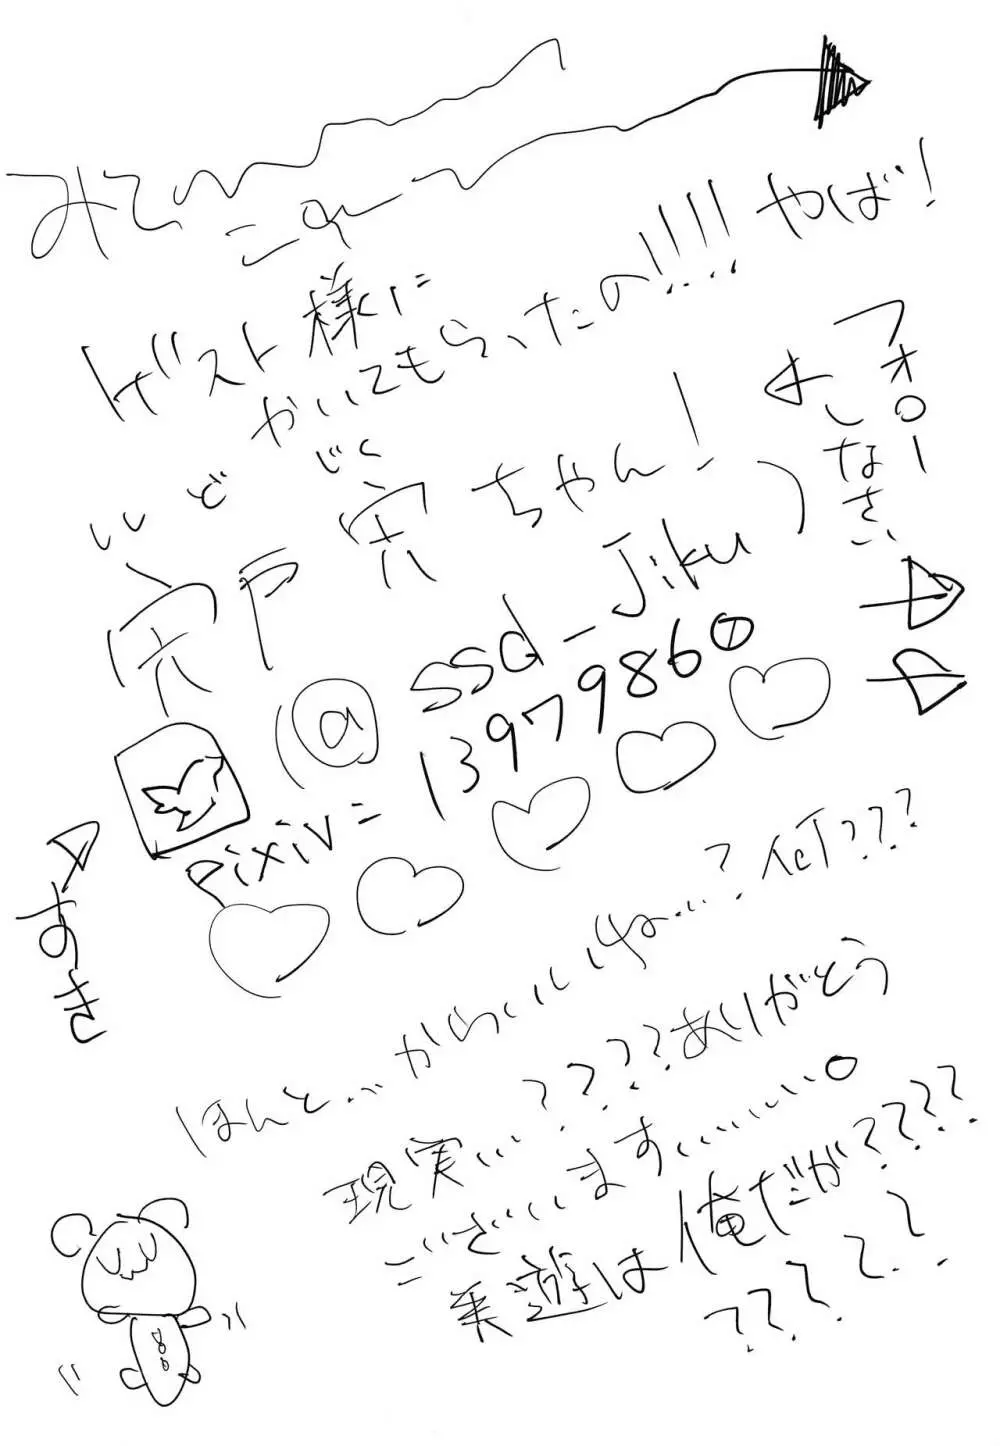 みて
ゲスト様に
かいてもらったの!!!! やば!
ししど じく
宍戸宍ちゃん!
(@ssd_Jiku)
フォロー
しなさい
pixiv=13979860
すき
ほんと…かわいいね…?何???
現実…????ありがとう
ございます……。
美遊は俺だが????
?????